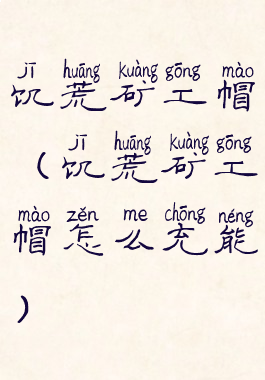 jī huāng kuàng gōng mào
饥荒矿工帽
jī huāng kuàng gōng
（饥荒矿工
mào zěn me chōng néng
帽怎么充能
）